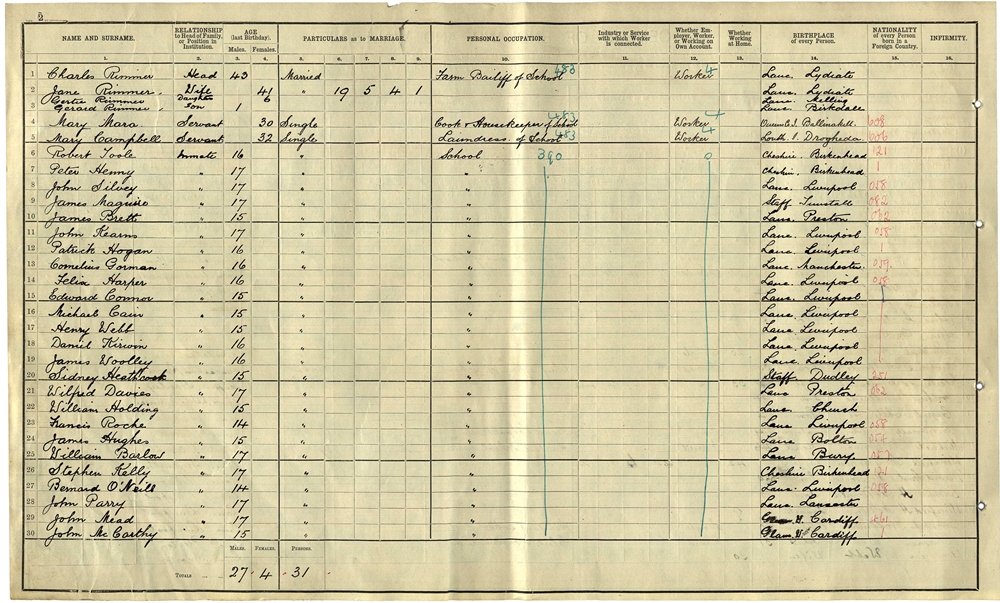 2
NAME AND SURNAME. RELATIONSHIP to Head of Family, or Position in Institution. AGE (last Birthday). Males. Females. PARTICULARS as to MARRIAGE. PERSONAL OCCUPATION. Industry or Service with which Worker is connected. Whether Employer, Worker, or Working on Own Account. Whether Working at Home. BIRTHPLACE of every Person. NATIONALITY of every Person born in a Foreign Country. INFIRMITY.
1. 2. 3. 4. 5. 6. 7. 8. 9. 10. 11. 12. 13. 14. 15. 16.
1 Charles Rimmer Head 43 Married Farm Bailiff of School 483 Worker 4 Lanc. Lydiate
2 Jane Rimmer Wife 41 " 19 5 4 1 Lanc. Lydiate
3 Gertie Rimmer Daughter 6 Lanc. Melling
Gerard Rimmer Son 1 Lanc. Birkdale
4 Mary Mara Servant 30 Single Cook & Housekeeper of School 483 Worker 4 Queens Co. I. Ballinakill 608
5 Mary Campbell Servant 32 Single Laundress of School 483 Worker 4 Louth I. Drogheda 606
6 Robert Toole Inmate 16 " School 390 0 Cheshire. Birkenhead 121
7 Peter Henny " 17 " " Cheshire. Birkenhead 1
8 John Silvey " 17 " " Lanc. Liverpool 058
9 James Maguire " 17 " " Staff. Tunstall 082
10 James Brett " 15 " " Lanc. Preston 062
11 John Kearns " 17 " " Lanc. Liverpool 058
12 Patrick Hogan " 16 " " Lanc. Liverpool 1
13 Cornelius Gorman " 16 " " Lanc. Manchester 059
14 Felix Harper " 16 " " Lanc. Liverpool 058
15 Edward Connor " 15 " " Lanc. Liverpool
16 Michael Cain " 15 " " Lanc. Liverpool
17 Henry Webb " 15 " " Lanc. Liverpool
18 Daniel Kirwin " 16 " " Lanc. Liverpool
19 James Woolley " 16 " " Lanc. Liverpool
20 Sidney Heathcock " 15 " " Staff. Dudley 251
21 Wilfred Davies " 17 " " Lanc Preston 062
22 William Holding " 15 " " Lanc. Church
23 Francis Roche " 14 " " Lanc Liverpool 058
24 James Hughes " 15 " " Lanc Bolton 052
25 William Barlow " 17 " " Lanc Bury
26 Stephen Kelly " 17 " " Cheshire Birkenhead 121
27 Bernard O'Neill " 14 " " Lanc. Liverpool 058
28 John Parry " 17 " " Lanc. Lancaster
29 John Mead " 17 " " Cardiff 661
30 John McCarthy " 15 " " Glam. Cardiff 1
MALES. FEMALES. PERSONS.
TOTALS 27 - 4 - 31